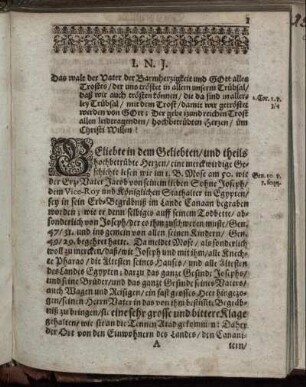 1
I. N. J.
Das walt der Vater der Barmhertzigkeit und GOtt alles
Trostes / der uns tröstet in allem unserm Trübsal /
daß wir auch trösten können / die da sind in allerley
Trübsal / mit dem Trost / damit wir getröstet
werden von GOtt: Der gebe
allen leidtragenden / hochbetrübten Hertzen / im
Christi Willen!
2. Cor. 1. v.
3/4
GEliebte in dem Geliebten / und theils
hochbetrübte Hertzen / eine merckwürdige Geschichte
lesen wir im 1. B. Mose am 50. wie
der Ertz-Vater Jacob von seinem lieben Sohne Joseph /
dem Vice-Roy und Königlichen Statthalter in Egypten /
sey in sein Erb-Begräbniß im Lande Canaan begraben
worden; wie er denn selbigs auff seinem Todbette / absonderlich
von Joseph / der es ihm zusch weren muste / Gen.
47/31. und in gemein von allen seinen Kindern / Gen.
49/29. begehret hatte. Da meldet Mose / als sonderlich
woll zu mercken / daß / wie Joseph und mit ihm / alle Knechte
Pharao / die Altesten seines Hauses / und alle Altesten
des Landes Egypten; darzu das gantze Gesinde Josephs /
und seine Brüder / und das gantze Gesinde seines Vaters /
auch Wagen und Reisigen / ein fast grosses Heer hingezogen /
seinen Herrn Vater in das von ihm bestimte Begräbniß
zu bringen / sie eine sehr grosse und bittere Klage
gehalten / wie sie an die Tennen Atad gekommen: Daher
der Ort von den Einwohnern des Landes / den Canani-
Gen. 50. v.
7. seqq.
A
tern /